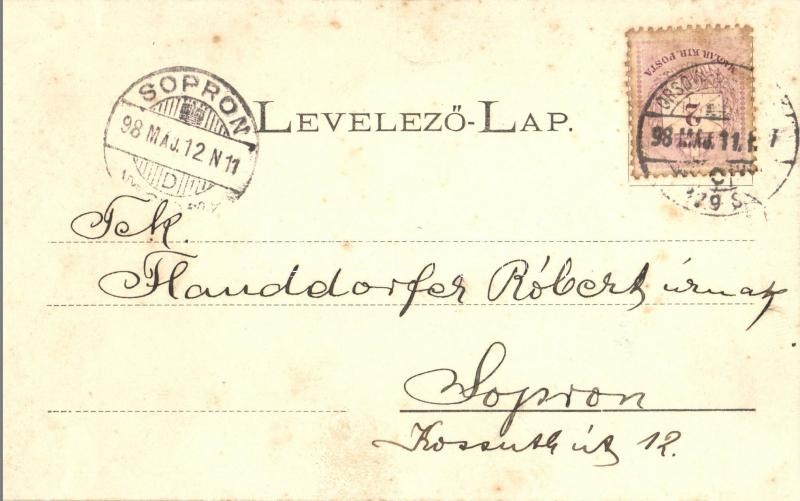 SOPRON
98 MÁJ. 12 N 11
D
LEVELEZŐ-LAP.
MAGYAR KIR. POSTA
2
98 MÁJ. 11.
Tek.
Flanddorfer Róbert úrnak
Sopron
Kossuth út 12.